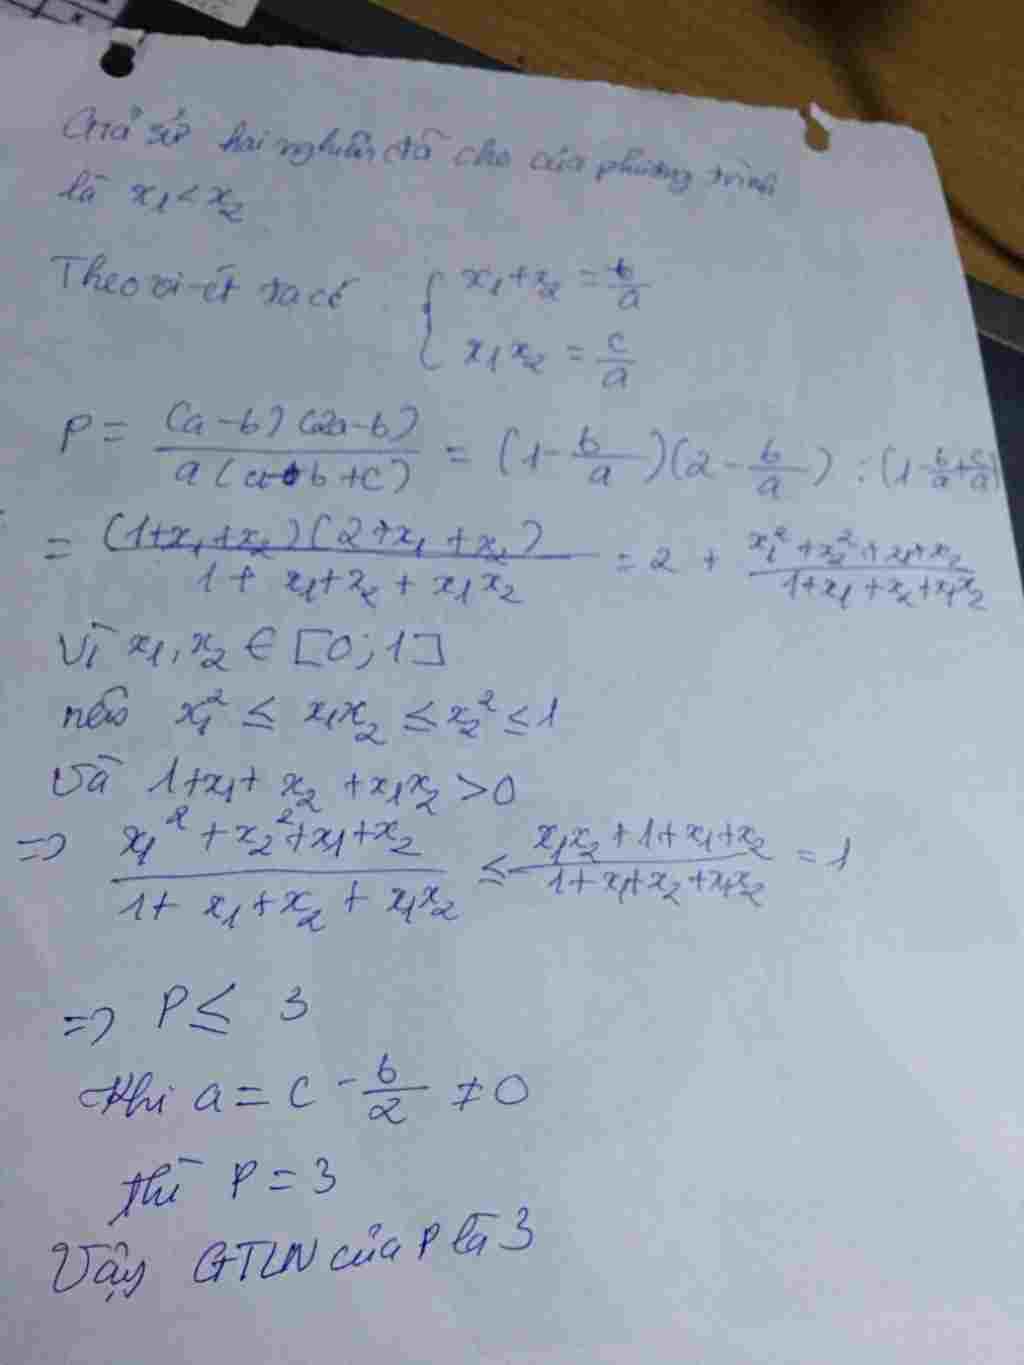 Giả sử hai nghiệm đã cho của phương trình
là x₁ < x₂
Theo vi-ét ta có { x₁ + x₂ = b/a
x₁x₂ = c/a
P = (a-b)(2a-b) / a(a-b+c) = (1 - b/a)(2 - b/a) : (1 - b/a + c/a)
= (1+x₁+x₂)(2+x₁+x₂) / 1 + x₁+x₂ + x₁x₂ = 2 + x₁² + x₂² + x₁+x₂ / 1+x₁+x₂+x₁x₂
Vì x₁, x₂ ∈ [0; 1]
nên x₁² ≤ x₁x₂ ≤ x₂² ≤ 1
Và 1+x₁+ x₂ + x₁x₂ > 0
=> x₁² + x₂² + x₁ + x₂ / 1 + x₁ + x₂ + x₁x₂ ≤ x₁x₂ + 1 + x₁ + x₂ / 1 + x₁ + x₂ + x₁x₂ = 1
=> P ≤ 3
Khi a = c - b/2 ≠ 0
thì P = 3
Vậy GTLN của P là 3